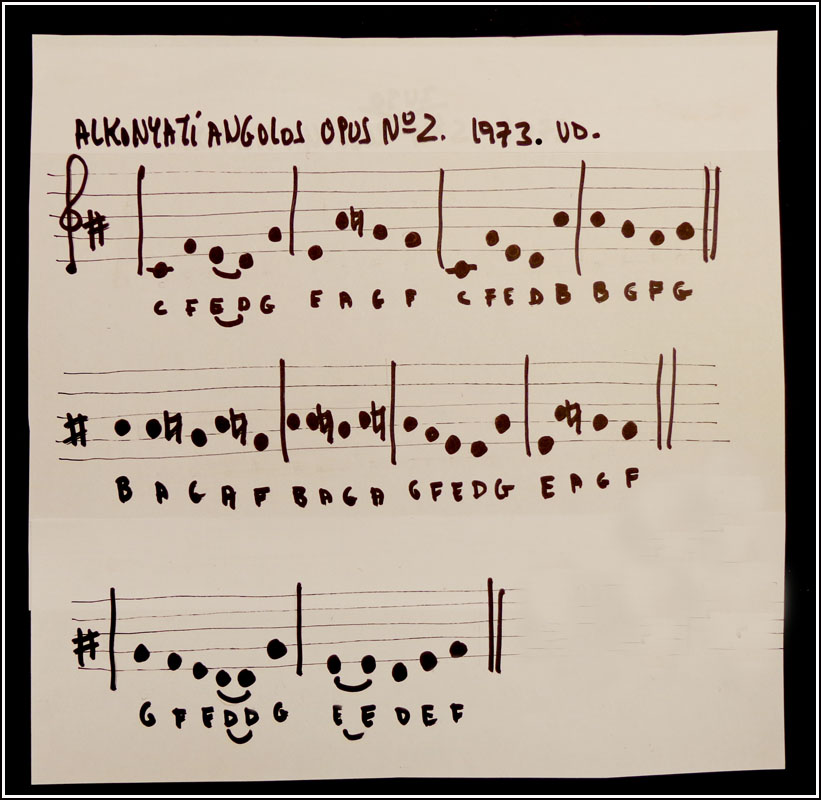 ALKONYATI ANGOLOS OPUS Nº2. 1973. UD.
C F E D G E A G F C F E D B B G F G
B A G A F B A G A G F E D G E A G F
G F E D D G E E D E F